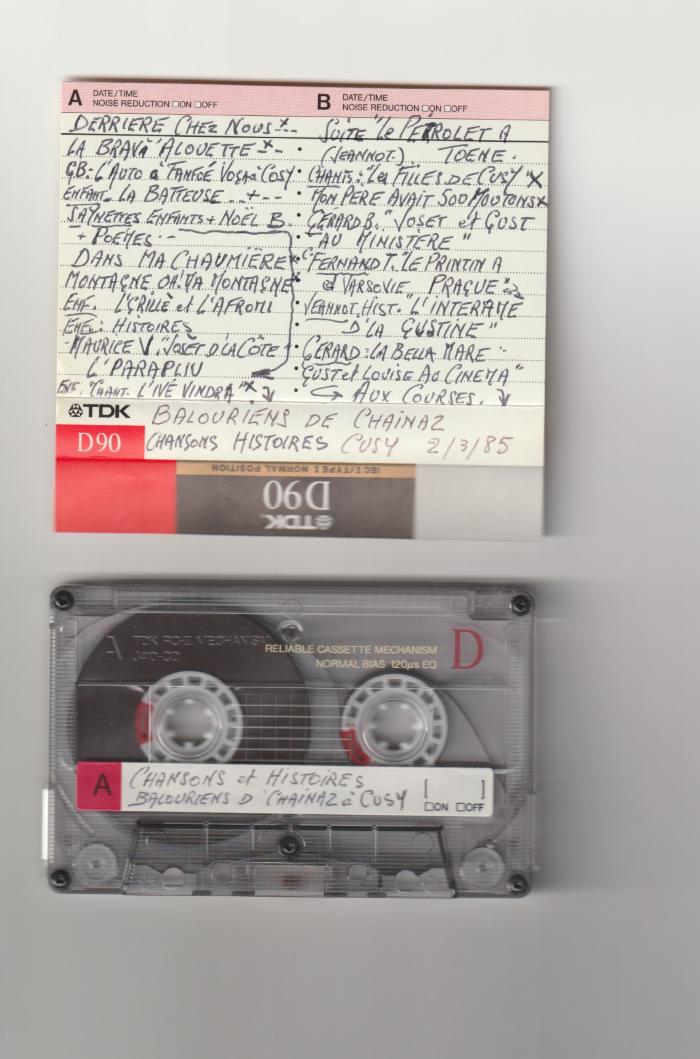 A DATE/TIME
NOISE REDUCTION ☐ON ☐OFF
DERRIERE CHEZ NOUS x--
LA BRAVA ALOUETTE -x-
GB: L'AUTO à TANFOÉ VOSA: COSY
ENFANT. LA BATTEUSE --+--
SAYNETTES ENFANTS + NOËL B.
+ POËMES --
DANS MA CHAUMIÈRE x
MONTAGNE OH! MA MONTAGNE x
ENF. L'GRILLÈ et L'AFROMI
ENF.: HISTOIRES
-MAURICE V. "JOSET D LA CÔTE
L'PARAPLIU
ENF. "CHANT- L'IVÉ VINDRA" x
B DATE/TIME
NOISE REDUCTION ☐ON ☐OFF
SUITE "Le PÉTROLET A
(JEANNOT.) TOENE.
CHANTS: "Les FILLES DE CUSY" X
MON PÈRE AVAIT 500 MOUTONS x
GERARD B. "JOSET et GUST
AU MINISTÈRE"
"FERNAND T. "LE PRINTIN A
VARSOVIE PRAGUE"
JEANNOT, HIST. "L'INTERAME
D'LA GUSTINE"
GERARD: LA BELLA MARE -
GUST et LOUISE AU CINEMA"
AUX COURSES.
TDK BALOURIENS DE CHAINAZ
D90 CHANSONS HISTOIRES CUSY 2/3/85
IEC I/TYPE I NORMAL POSITION
D90
TDK
A TDK RC-II MECHANISM
RELIABLE CASSETTE MECHANISM D
NORMAL BIAS 120µs EQ
A CHANSONS et HISTOIRES [ ]
BALOURIENS D CHAINAZ à CUSY ☐ON ☐OFF